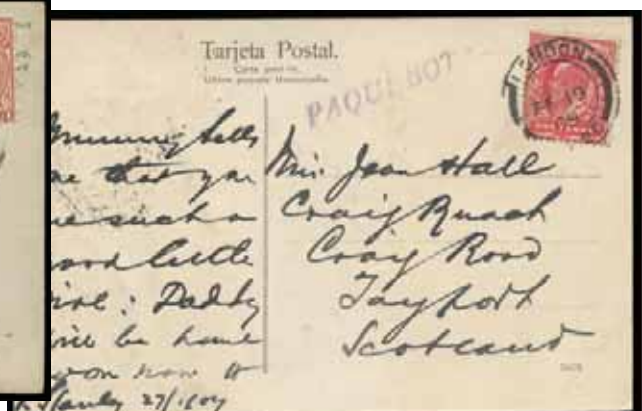 Tarjeta Postal.
PAQUEBOT
LONDON
Mummy tells
me that you
are such a
good little
girl: Daddy
will be home
soon now
Stanley 27/1/09
Miss Jean Hall
Craig Ruach
Craig Road
Tayport
Scotland